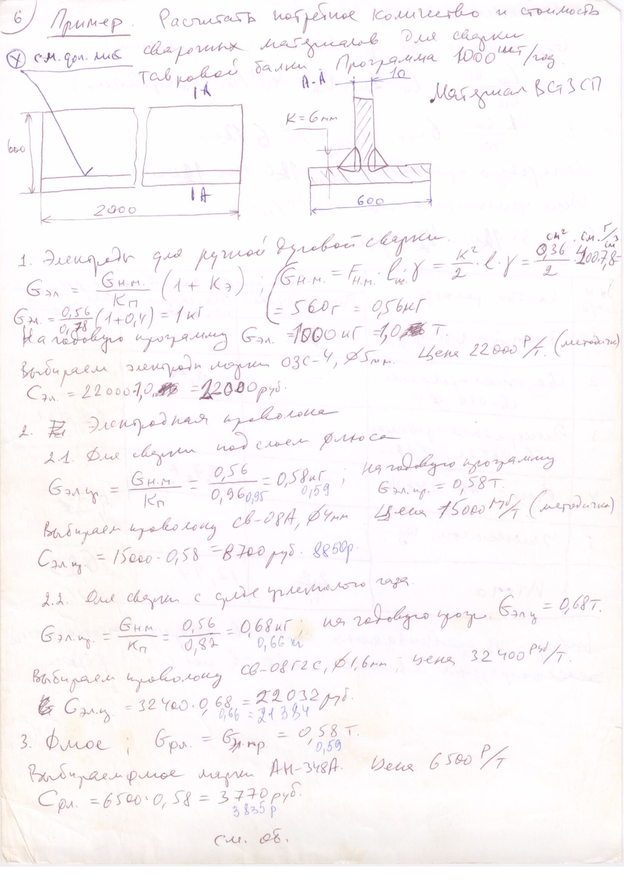 6 Пример. Расчитать потребное количество и стоимость
(X) см. доп. лист сварочных материалов для сварки
тавровой балки. Программа 1000 шт/год.
Материал ВСт3СП
А-А 10
1А
K=6мм
600
1А
2000
600
1. Электроды для ручной дуговой сварки.
Gэл = Gн.м./Kп (1 + Kэ) ; Gн.м. = Fн.м. · lш · γ = K²/2 · l · γ = 0,36/2 см² · 400 см · 7,8 г/см³ =
Gэл. = 0,56/0,78 (1+0,4) = 1 кг = 560г = 0,56кг
На годовую программу Gэл. = 1000 кг = 1,0 т.
Выбираем электроды марки ОЗС-4, ∅5мм. Цена 22000 Р/т. (методичка)
Cэл. = 22000·1,0 = 22000 руб.
2. Электродная проволока
2.1. Для сварки под слоем флюса
Gэл.пр. = Gн.м./Kп = 0,56/0,96 = 0,58кг ; на годовую программу
0,95 0,59 Gэл.пр. = 0,58т.
Выбираем проволоку св-08А, ∅4мм Цена 15000 руб/т (методичка)
Cэл.пр. = 15000·0,58 = 8700 руб. 8850р.
2.2. Для сварки в среде углекислого газа.
Gэл.пр. = Gн.м/Kп = 0,56/0,82 = 0,68кг ; на годовую прогр. Gэл.пр = 0,68т.
0,66 кг
Выбираем проволоку св-08Г2С, ∅1,6мм ; цена 32400 руб/т.
Cэл.пр. = 32400·0,68 = 22032 руб.
0,66 = 21384
3. Флюс ; Gфл. = Gэл.пр. = 0,58 т.
0,59
Выбираем флюс марки АН-348А. Цена 6500 Р/т
Cфл. = 6500·0,58 = 3770 руб.
3835 р
см. об.